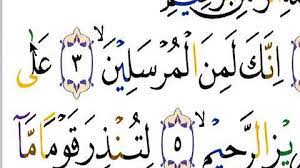 إِنَّكَ لَمِنَ الْمُرْسَلِيْنَ ۙ ۳ عَلٰى
يْزِ الرَّحِيْمِ ۙ ۵ لِتُنْذِرَ قَوْمًا مَّآ